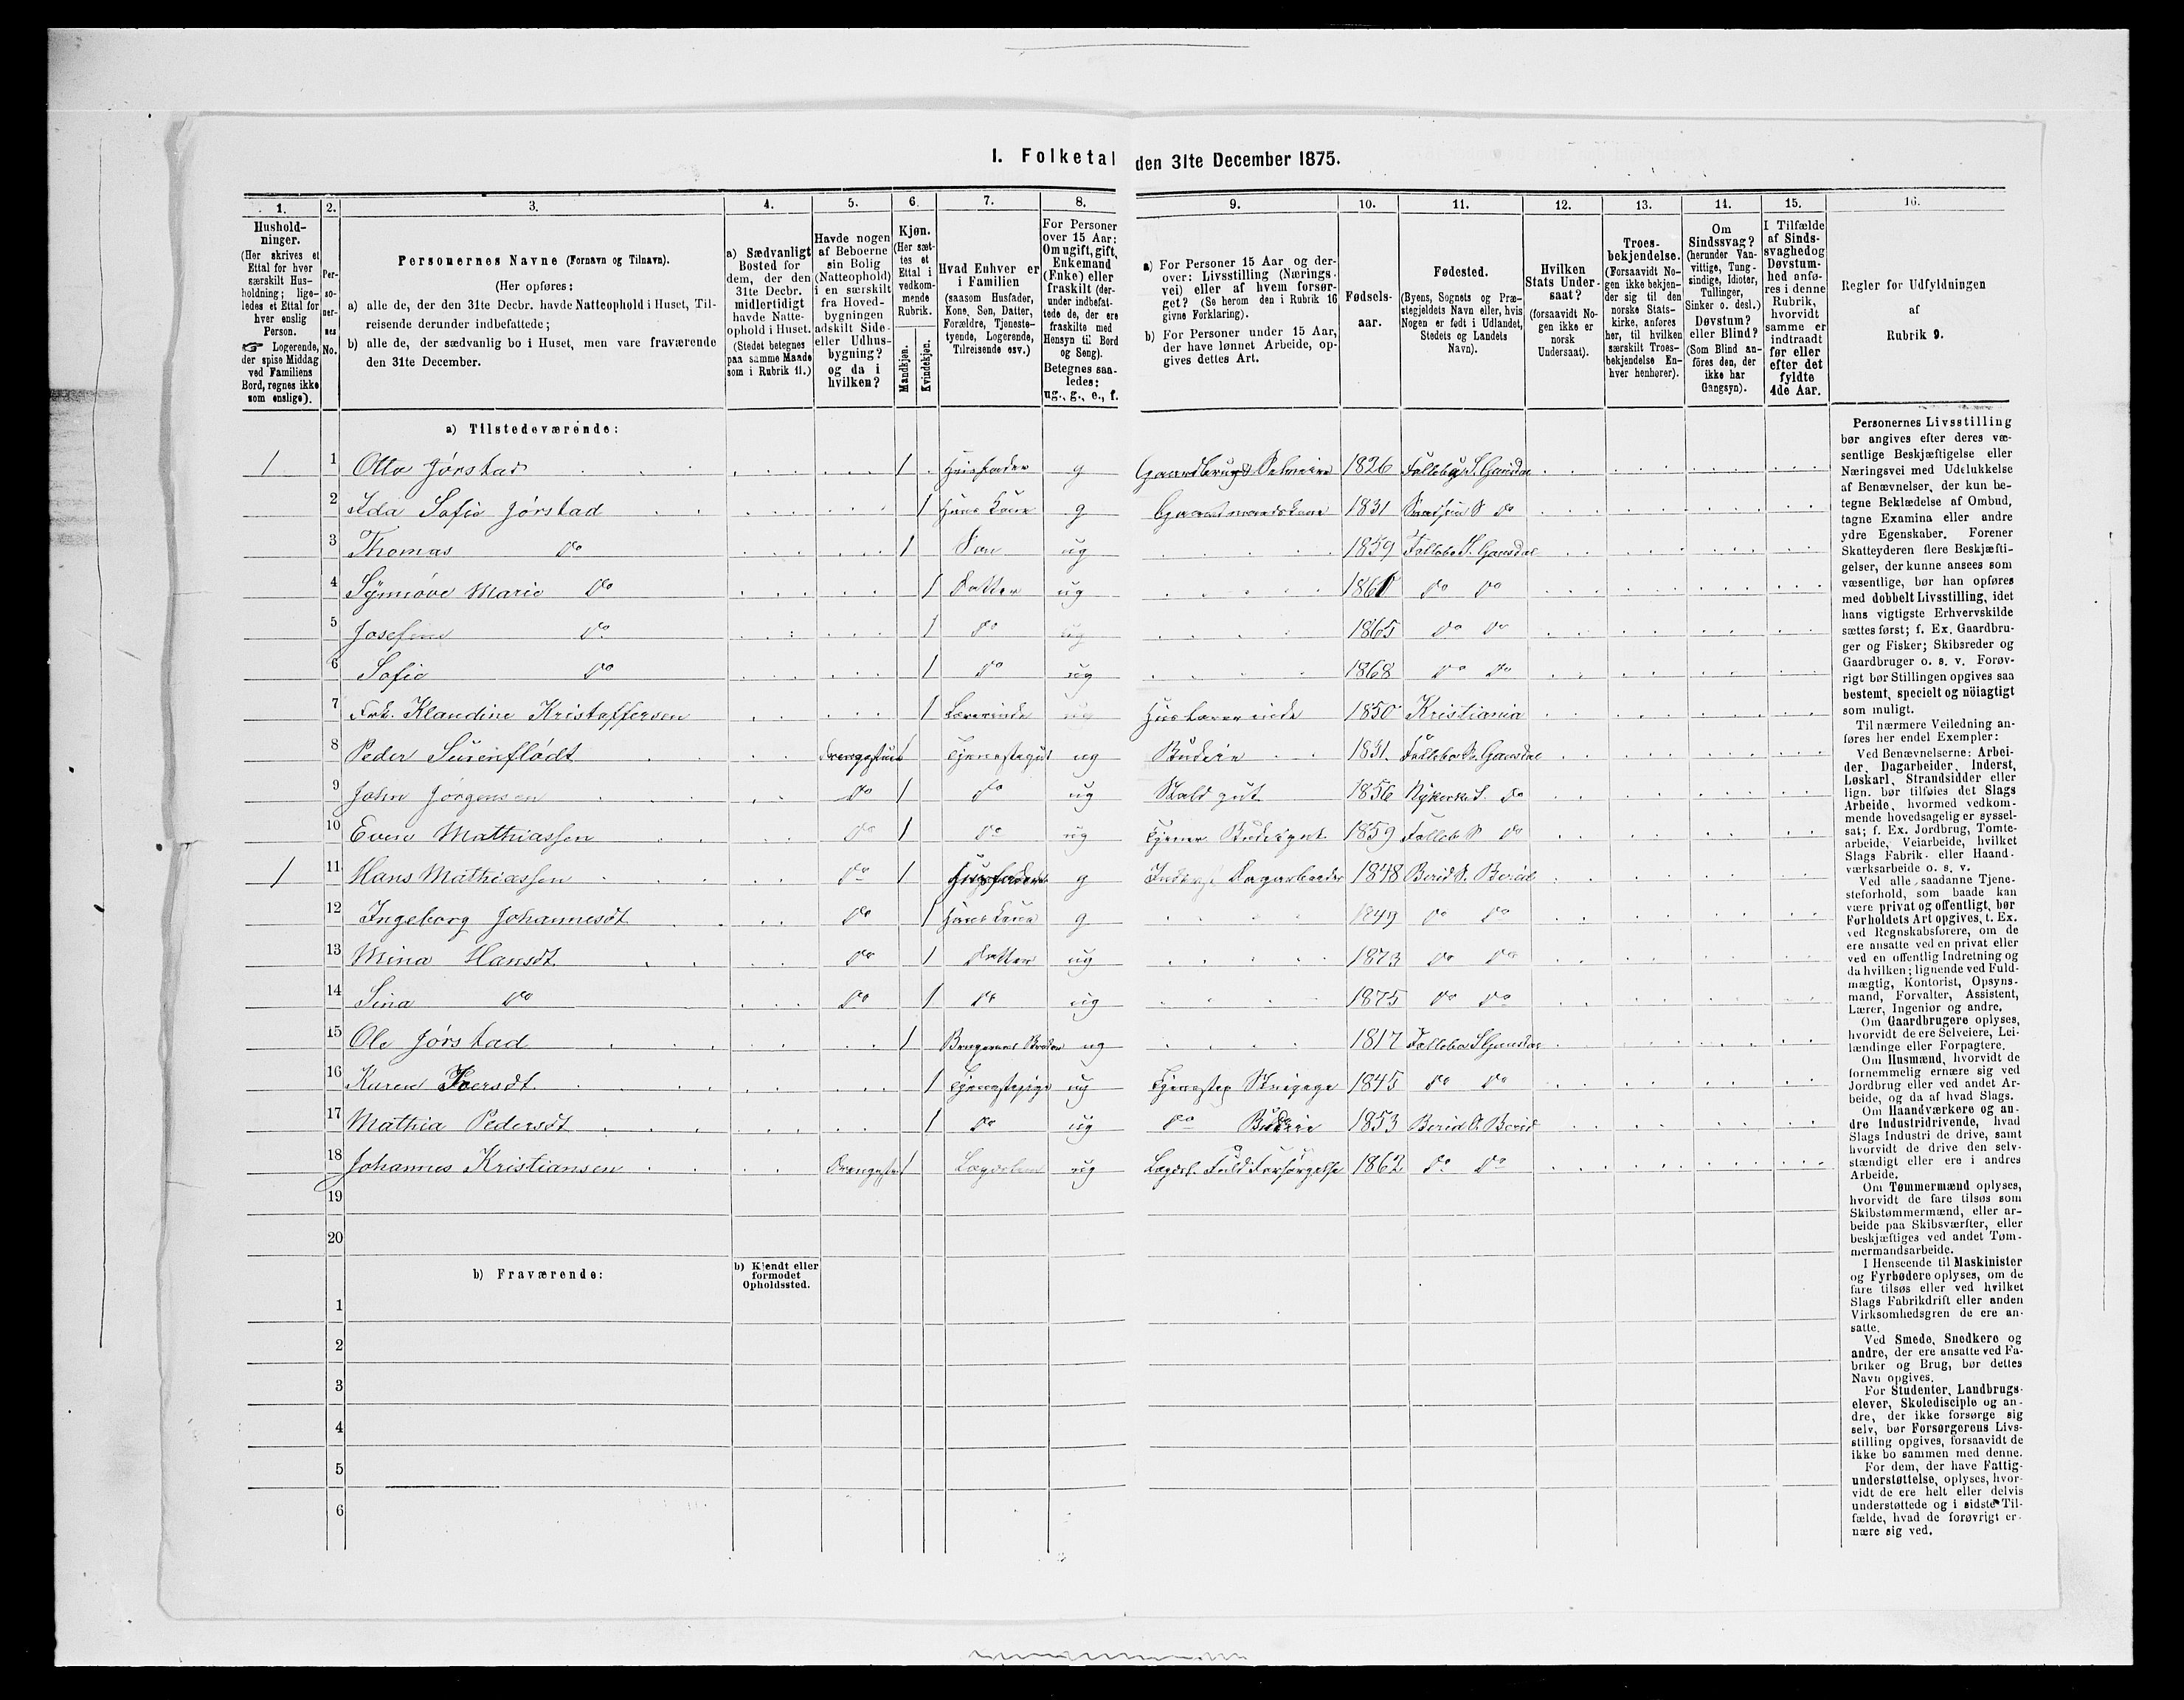 I. Folketal den 31te December 1875.
1. 2. 3. 4. 5. 6. 7. 8. 9. 10. 11. 12. 13. 14. 15. 16.
Hushold-
ninger.
(Her skrives et
Ettal for hver
særskilt Hus-
holdning; lige-
ledes et Ettal for
hver enslig
Person.
☞ Logerende,
der spise Middag
ved Familiens
Bord, regnes ikke
som enslige).
Per-
so-
ner-
nes
No.
Personernes Navne (Fornavn og Tilnavn).
(Her opføres:
a) alle de, der den 31te Decbr. havde Natteophold i Huset, Til-
reisende derunder indbefattede;
b) alle de, der sædvanlig bo i Huset, men vare fraværende
den 31te December.
a) Sædvanligt
Bosted for
dem, der den
31te Decbr.
midlertidigt
havde Natte-
ophold i Huset.
(Stedet betegnes
paa samme Maade
som i Rubrik 11.)
Havde nogen
af Beboerne
sin Bolig
(Natteophold)
i en særskilt
fra Hoved-
bygningen
adskilt Side-
eller Udhus-
bygning?
og da i
hvilken?
Kjøn.
(Her sæt-
tes et
Ettal i
vedkom-
mende
Rubrik.
Mandkjøn.
Kvindekjøn.
Hvad Enhver er
i Familien
(saasom Husfader,
Kone, Søn, Datter,
Forældre, Tjeneste-
tyende, Logerende,
Tilreisende osv.)
For Personer
over 15 Aar:
Om ugift, gift,
Enkemand
(Enke) eller
fraskilt (der-
under indbefat-
tede de, der ere
fraskilte med
Hensyn til Bord
og Seng).
Betegnes saa-
ledes:
ug., g., e., f.
a) For Personer 15 Aar og der-
over: Livsstilling (Nærings-
vei) eller af hvem forsør-
get? (Se herom den i Rubrik 16
givne Forklaring).
b) For Personer under 15 Aar,
der have lønnet Arbeide, op-
gives dettes Art.
Fødsels-
aar.
Fødested.
(Byens, Sognets og Præ-
stegjeldets Navn eller, hvis
Nogen er født i Udlandet,
Stedets og Landets
Navn).
Hvilken
Stats Under-
saat?
(forsaavidt No-
gen ikke er
norsk
Undersaat).
Troes-
bekjendelse.
(Forsaavidt No-
gen ikke bekjen-
der sig til den
norske Stats-
kirke, anføres
her, til hvilken
særskilt Troes-
bekjendelse En-
hver henhører).
Om
Sindssvag?
(herunder Van-
vittige, Tung-
sindige, Idioter,
Tullinger,
Sinker o. desl.)
Døvstum?
eller Blind?
(Som Blind an-
föres den, der
ikke har
Gangsyn).
I Tilfælde
af Sinds-
svaghed og
Døvstum-
hed anfø-
res i denne
Rubrik,
hvorvidt
samme er
indtraadt
før eller
efter det
fyldte
4de Aar.
Regler for Udfyldningen
af
Rubrik 9.
a) Tilstedeværende:
1 1 Otto Jørstad 1 Husfader g Gaardbruger Selveier 1826 Følleboe S. Gausdal
2 Ida Sofie Jørstad 1 Huus Kone g Gaardmandskone 1831 do
3 Thomas do 1 Søn ug 1859 Føllebo S. Gausdal
4 Synnøve Marie do 1 Datter ug 1861 do do
5 Josefine do 1 do ug 1865 do do
6 Sofie do 1 do ug 1868 do do
7 Frk. Klaudine Kristoffersen 1 Lærerinde Huslærerinde 1850 Kristiania
8 Peder Surenflødt Drengestuen 1 Tjenestegut ug Budeie 1831 Føllebo S. Gausdal
9 John Jørgensen do 1 do ug Stald gut 1856 Nykerke S. do
10 Even Mathiassen do 1 do ug Tjener 1859 Føllebo S do
1 11 Hans Mathiassen do 1 Husfader g Inderst Dagarbeider 1848 Berid S. Berid
12 Ingeborg Johannesdt do 1 Huus Kone g 1849 do do
13 Mina Hansdt do 1 Datter ug 1873 do do
14 Sina do do 1 do ug 1875 do do
15 Ole Jørstad 1 Brugerens Broder ug 1817 Føllebo S Gausdal
16 Karen Iversdt 1 Tjenestepige ug 1845 do do
17 Mathia Pedersdt 1 do ug do Budeie 1853 Berid S. Berid
18 Johannes Kristiansen 1 Lægdslem ug Lægdsl. Fuld Forsørgelse 1862 do do
19
20
b) Fraværende:
b) Kjendt eller
formodet
Opholdssted.
1
2
3
4
5
6
Personernes Livsstilling
bør angives efter deres væ-
sentlige Beskjæftigelse eller
Næringsvei med Udelukkelse
af Benævnelser, der kun be-
tegne Beklædelse af Ombud,
tagne Examina eller andre
ydre Egenskaber. Forener
Skatteyderen flere Beskjæfti-
gelser, der kunne ansees som
væsentlige, bør han opføres
med dobbelt Livsstilling, idet
hans vigtigste Erhvervskilde
sættes først; f. Ex. Gaardbru-
ger og Fisker; Skibsreder og
Gaardbruger o. s. v. Forøv-
rigt bør Stillingen opgives saa
bestemt, specielt og nöiagtigt
som muligt.
Til nærmere Veiledning an-
føres her endel Exempler:
Ved Benævnelserne: Arbei-
der, Dagarbeider, Inderst,
Løskarl, Strandsidder eller
lign. bør tilføies det Slags
Arbeide, hvormed vedkom-
mende hovedsagelig er syssel-
sat; f. Ex. Jordbrug, Tomte-
arbeide, Veiarbeide, hvilket
Slags Fabrik- eller Haand-
værksarbeide o. s. v.
Ved alle saadanne Tjene-
steforhold, som baade kan
være privat og offentligt, bør
Forholdets Art opgives, t. Ex.
ved Regnskabsførere, om de
ere ansatte ved en privat eller
ved en offentlig Indretning og
da hvilken; lignende ved Fuld-
mægtig, Kontorist, Opsyns-
mand, Forvalter, Assistent,
Lærer, Ingeniør og andre.
Om Gaardbrugere oplyses,
hvorvidt de ere Selveiere, Lei-
lændinge eller Forpagtere.
Om Husmænd, hvorvidt de
fornemmelig ernære sig ved
Jordbrug eller ved andet Ar-
beide, og da af hvad Slags.
Om Haandværkere og an-
dre Industridrivende, hvad
Slags Industri de drive, samt
hvorvidt de drive den selv-
stændigt eller ere i andres
Arbeide.
Om Tømmermænd oplyses,
hvorvidt de fare tilsøs som
Skibstømmermænd, eller ar-
beide paa Skibsværfter, eller
beskjæftiges ved andet Tøm-
mermandsarbeide.
I Henseende til Maskinister
og Fyrbødere oplyses, om de
fare tilsøs eller ved hvilket
Slags Fabrikdrift eller anden
Virksomhedsgren de ere an-
satte.
Ved Smede, Snedkere og
andre, der ere ansatte ved Fa-
briker og Brug, bør dettes
Navn opgives.
For Studenter, Landbrugs-
elever, Skoledisciple og an-
dre, der ikke forsørge sig
selv, bør Forsørgerens Livs-
stilling opgives, forsaavidt de
ikke bo sammen med denne.
For dem, der have Fattig-
understøttelse, oplyses, hvor-
vidt de ere helt eller delvis
understøttede og i sidste Til-
fælde, hvad de forøvrigt er-
nære sig ved.